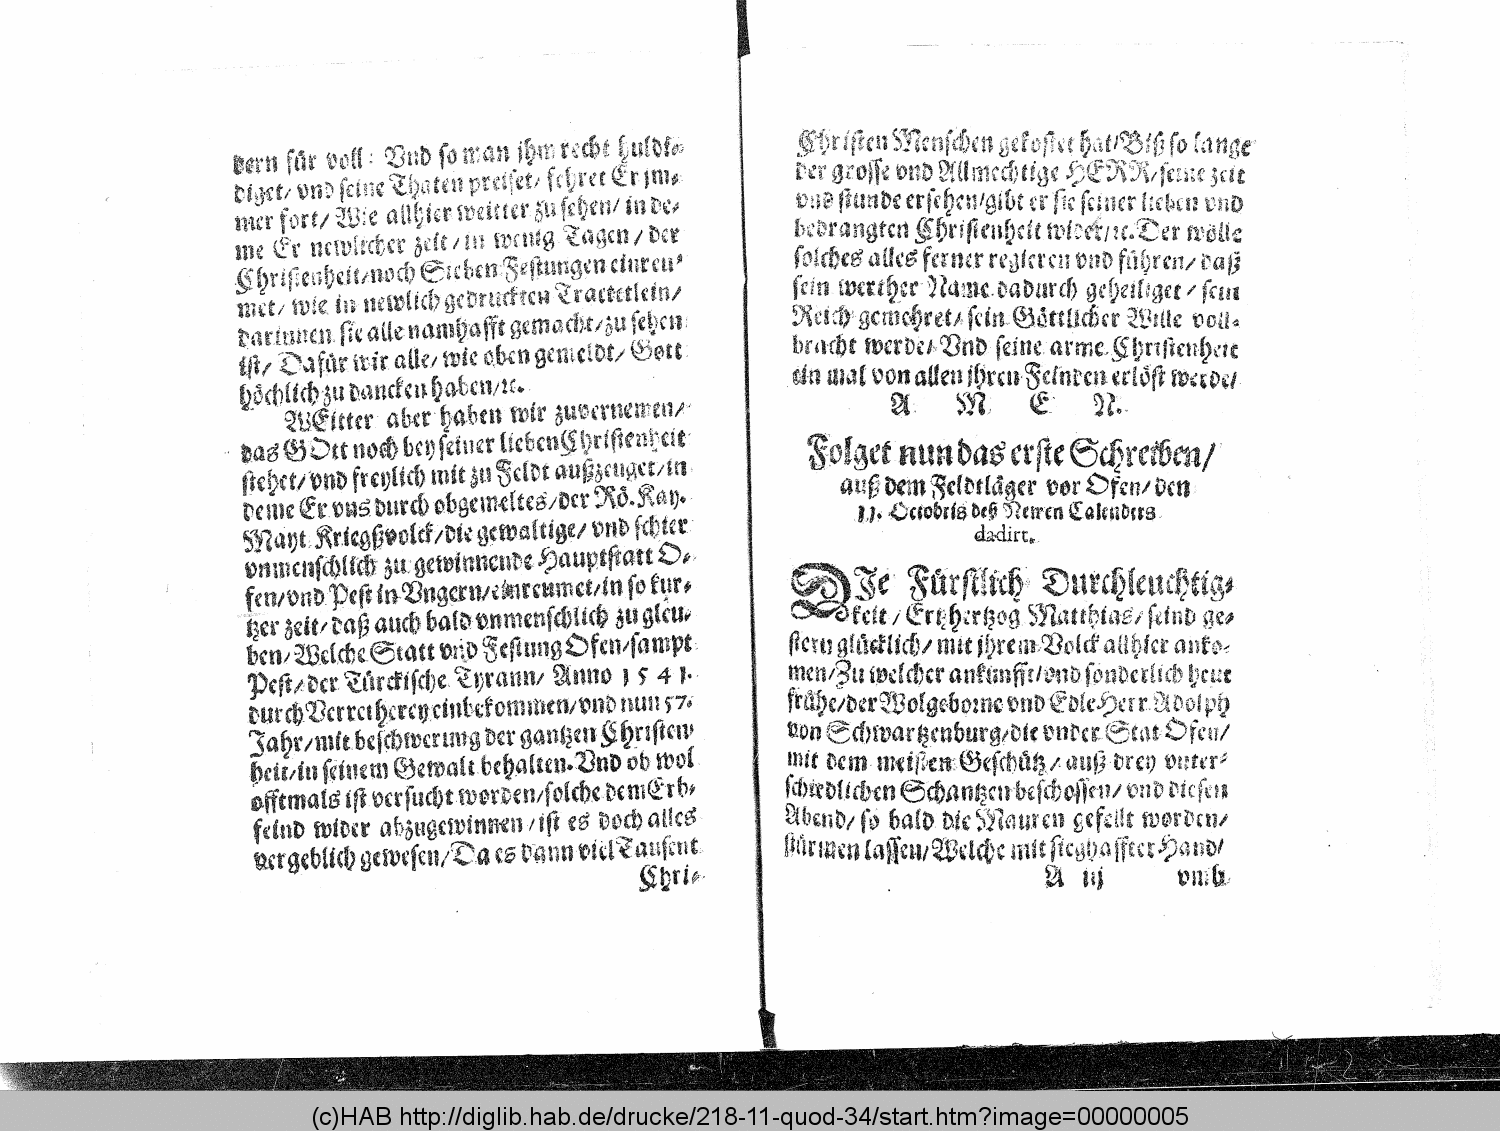 dern für voll: Vnd so man jhm recht huldi-
diget/ vnd seine Thaten preiset/ fehret Er jm-
mer fort/ Wie allhier weitter zu sehen/ in de-
me Er newlicher zeit/ in wenig Tagen/ der
Christenheit/ noch Sieben Festungen einreu-
met/ wie in newlich gedruckten Tractetlein/
darinnen sie alle namhafft gemacht/ zu sehen
ist/ Dafür wir alle/ wie oben gemeldt/ Gott
höchlich zu dancken haben/ ꝛc.
WEitter aber haben wir zuvernemen/
das GOtt noch bey seiner lieben Christenheit
stehet/ vnd freylich mit zu Feldt außzeuget/ in
deme Er vns durch obgemeltes/ der Rö. Kay.
Mayt Kriegßvolck/ die gewaltige/ vnd schier
vnmenschlich zu gewinnende Hauptstatt O-
fen/ vnd Pest in Vngern/ einreumet/ in so kur-
tzer zeit/ daß auch bald vnmenschlich zu gleu-
ben/ Welche Statt vnd Festung Ofen/ sampt
Pest/ der Türckische Tyrann/ Anno 1541.
durch Verretherey einbekommen/ vnd nun 57.
Jahr/ mit beschwerung der gantzen Christen
heit/ in seinem Gewalt behalten. Vnd ob wol
offtmals ist versucht worden/ solche dem Erb-
feind wider abzugewinnen/ ist es doch alles
vergeblich gewesen/ Da es dann viel Tausent
Chri-
Christen Menschen gekostet hat/ Biß so lange
der grosse vnd Allmechtige HERR/ seine zeit
vnd stunde ersehen/ gibt er sie seiner lieben vnd
bedrangten Christenheit wider/ ꝛc. Der wölle
solches alles ferner regieren vnd führen/ daß
sein werther Name dadurch geheiliget/ sein
Reich gemehret/ sein Göttlicher Wille voll-
bracht werde/ Vnd seine arme Christenheit
ein mal von allen jhren Feinden erlöst werde/
A M E N.
Folget nun das erste Schreiben/
auß dem Feldtläger vor Ofen/ den
11. Octobris deß Newen Calenders
dadirt.
DIe Fürstlich Durchleuchtig-
keit/ Ertzhertzog Matthias/ seind ge-
stern glücklich/ mit jhrem Volck allhier anko-
men/ Zu welcher ankunfft/ vnd sonderlich heut
frühe/ der Wolgeborne vnd Edle Herr Adolph
von Schwartzenburg/ die vnder Stat Ofen/
mit dem meisten Geschütz/ auß drey vnter-
schiedlichen Schantzen beschossen/ vnd diesen
Abend/ so bald die Mauren gefellt worden/
stürmen lassen/ Welche mit sieghaffter Hand/
A iij vmb
(c)HAB http://diglib.hab.de/drucke/218-11-quod-34/start.htm?image=00000005